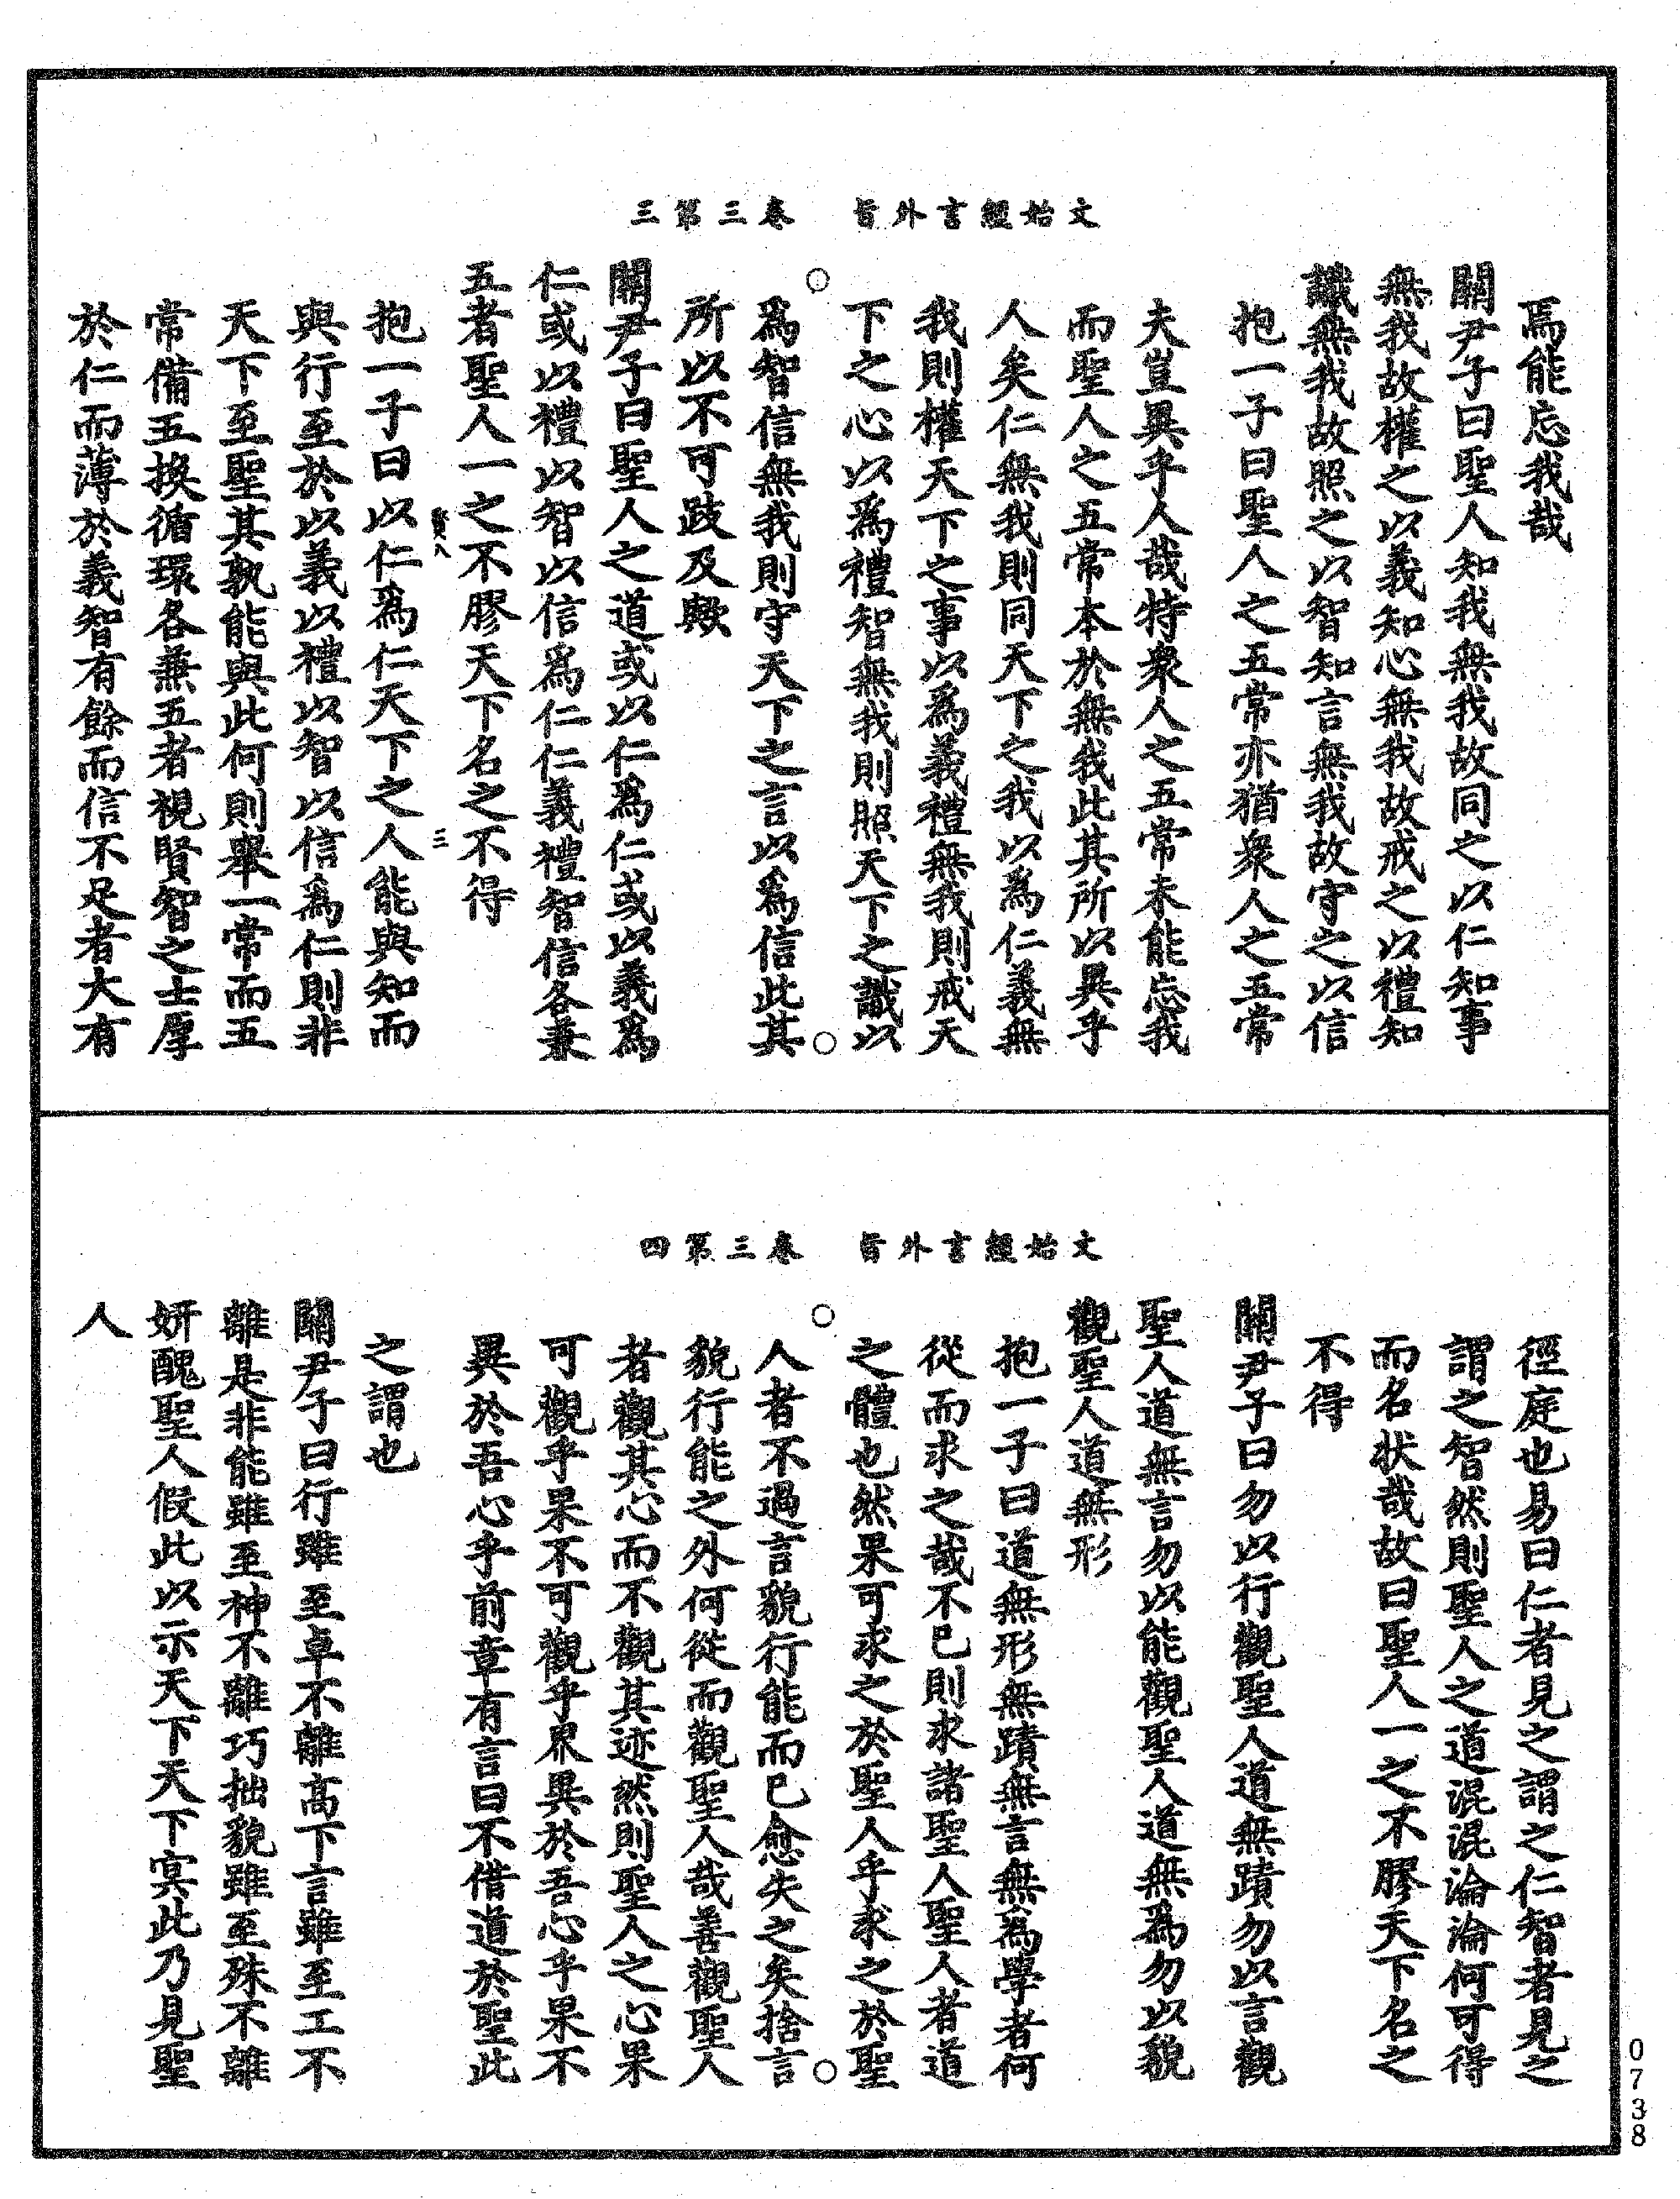 文始經言外旨　卷三第三
焉能忘我哉
關尹子曰聖人知我無我故同之以仁知事
無我故權之以義知心無我故戒之以禮知
識無我故照之以智知言無我故守之以信
抱一子曰聖人之五常亦猶衆人之五常
夫豈異乎人哉特衆人之五常未能忘我
而聖人之五常本於無我此其所以異乎
人矣仁無我則同天下之我以為仁義無
我則權天下之事以為義禮無我則戒天
下之心以為禮智無我則照天下之識以
為智信無我則守天下之言以為信此其
所以不可跂及歟
關尹子曰聖人之道或以仁為仁或以義為
仁或以禮以智以信為仁仁義禮智信各兼
五者聖人一之不膠天下名之不得
三
抱一子曰以仁為仁天下之人能與知而
與行至於以義以禮以智以信為仁則非
天下至聖其孰能與此何則舉一常而五
常備五換循環各兼五者視賢智之士厚
於仁而薄於義智有餘而信不足者大有
文始經言外旨　卷三第四
徑庭也易曰仁者見之謂之仁智者見之
謂之智然則聖人之道混混淪淪何可得
而名狀哉故曰聖人一之不膠天下名之
不得
關尹子曰勿以行觀聖人道無蹟勿以言觀
聖人道無言勿以能觀聖人道無為勿以貌
觀聖人道無形
抱一子曰道無形無蹟無言無為學者何
從而求之哉不已則求諸聖人聖人者道
之體也然果可求之於聖人乎求之於聖
人者不過言貌行能而已愈失之矣捨言
貌行能之外何從而觀聖人哉善觀聖人
者觀其心而不觀其迹然則聖人之心果
可觀乎果不可觀乎果異於吾心乎果不
異於吾心乎前章有言曰不借道於聖此
之謂也
關尹子曰行雖至卓不離高下言雖至工不
離是非能雖至神不離巧拙貌雖至殊不離
妍醜聖人假此以示天下天下冥此乃見聖
人
0738